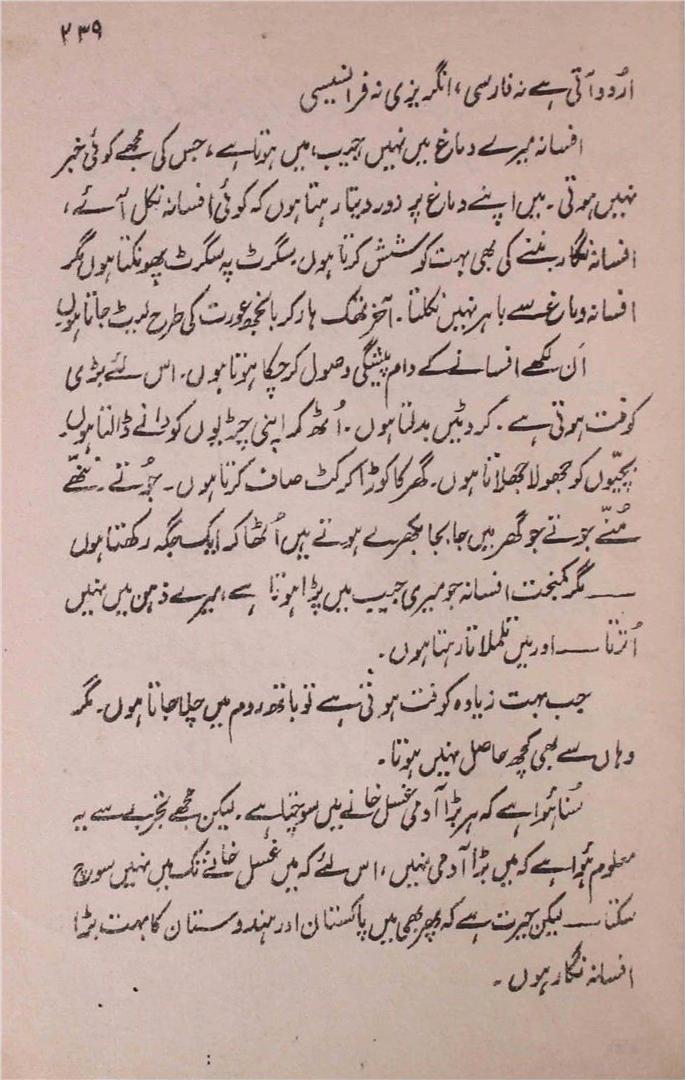 ۲۳۹
اُردو آتی ہے نہ فارسی، انگریزی نہ فرانسیسی
افسانہ میرے دماغ میں نہیں جیب میں ہوتا ہے، جس کی مجھے کوئی خبر
نہیں ہوتی۔ میں اپنے دماغ پر زور دیتا رہتا ہوں کہ کوئی افسانہ نکل آئے،
افسانہ نگار بننے کی بھی بہت کوشش کرتا ہوں سگرٹ پہ سگرٹ پھونکتا ہوں مگر
افسانہ دماغ سے باہر نہیں نکلتا۔ آخر تھک ہار کر بانجھ عورت کی طرح لیٹ جاتا ہوں۔
اَن لکھے افسانے کے دام پیشگی وصول کر چکا ہوتا ہوں۔ اس لئے بڑی
کوفت ہوتی ہے۔ کروٹیں بدلتا ہوں۔ اُٹھ کر اپنی چڑیوں کو دانے ڈالتا ہوں۔
بچیّوں کو جھولا جھلاتا ہوں۔ گھر کا کوڑا کرکٹ صاف کرتا ہوں۔ جُوتے۔ ننھّے
مُنّے جوتے جو گھر میں جا بجا بکھرے ہوتے ہیں اُٹھا کر ایک جگہ رکھتا ہوں
ـــ مگر کمبخت افسانہ جو میری جیب میں پڑا ہوتا ہے، میرے ذہن میں نہیں
اُترتا ـــ اور میں تلملاتا رہتا ہوں۔
جب بہت زیادہ کوفت ہوتی ہے تو باتھ روم میں چلا جاتا ہوں۔ مگر
وہاں سے بھی کچھ حاصل نہیں ہوتا۔
سُنا ہُوا ہے کہ ہر بڑا آدمی غسل خانے میں سوچتا ہے۔ لیکن مجھے تجربے سے یہ
معلوم ہُوا ہے کہ میں بڑا آدمی نہیں، اس لئے کہ میں غسل خانے تک میں نہیں سوچ
سکتا ـــ لیکن حیرت ہے کہ پھر بھی میں پاکستان اور ہندوستان کا بہت بڑا
افسانہ نگار ہوں۔